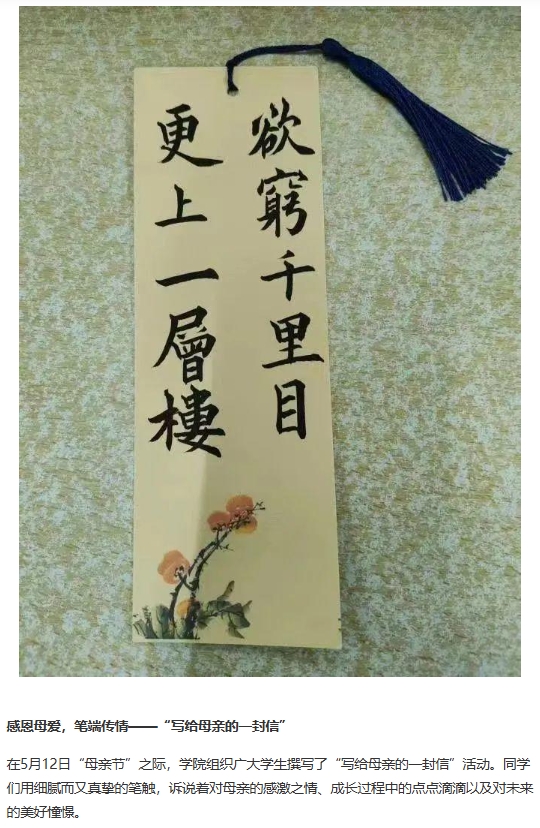 欲窮千里目
更上一層樓
感恩母爱，笔端传情——“写给母亲的一封信”
在5月12日“母亲节”之际，学院组织广大学生撰写了“写给母亲的一封信”活动。同学
们用细腻而又真挚的笔触，诉说着对母亲的感激之情、成长过程中的点点滴滴以及对未来
的美好憧憬。